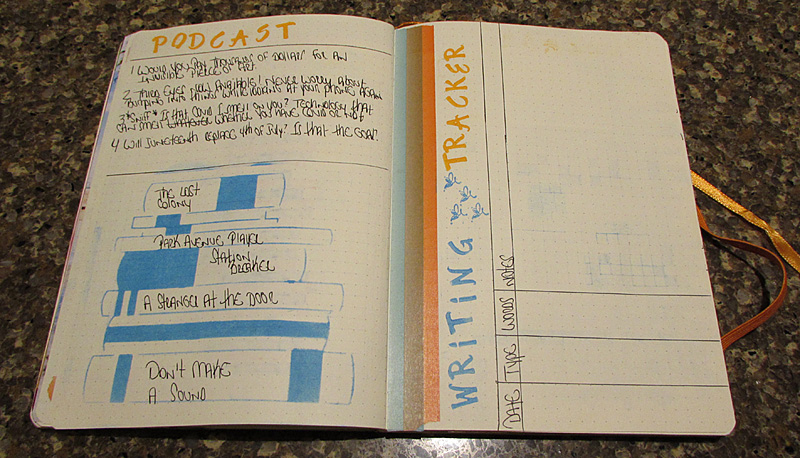 PODCAST
1 WOULD YOU PAY THOUSANDS OF DOLLARS FOR AN
INVISIBLE PIECE OF ART
2 THIRD EYES NOW AVAILABLE! NEVER WORRY ABOUT
BUMPING INTO THINGS WHILE LOOKING AT YOUR PHONE AGAIN
3 *SNIFF* IS THAT COVID I SMELL ON YOU? TECHNOLOGY THAT
CAN SMELL WHATEVER WHETHER YOU HAVE COVID OR NOT
4 WILL JUNETEENTH REPLACE 4TH OF JULY? IS THAT THE GOAL?
THE LOST
COLONY
PARK AVENUE PLAYER
STATION
BREAKER
A STRANGER AT THE DOOR
DON'T MAKE
A SOUND
WRITING TRACKER
DATE TYPE WORDS NOTES